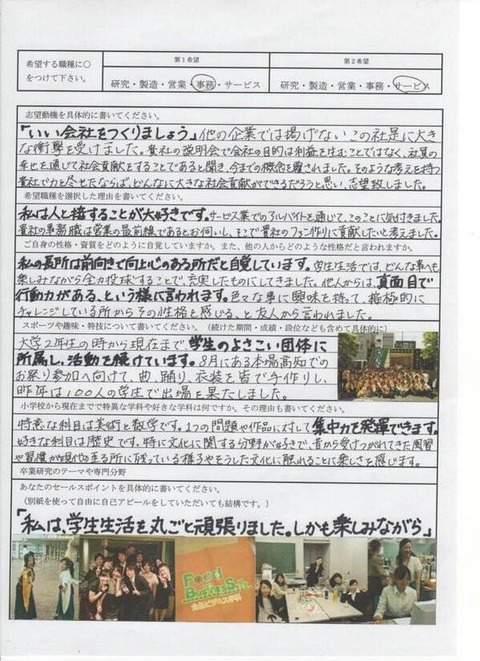 希望する職種に○
をつけて下さい。
第1希望
第2希望
研究・製造・営業・事務・サービス
研究・製造・営業・事務・サービス
志望動機を具体的に書いてください。
「いい会社をつくりましょう」他の企業では掲げないこの社是に大き
な衝撃を受けました。貴社の説明会で会社の目的は利益を生むことではなく、社員の
幸せを通じて社会貢献をすることであると聞き、今までの概念を覆されました。そのような考えを持つ
貴社で力を尽せたならば、どんなに大きな社会貢献ができるだろうと思い、志望致しました。
希望職種を選択した理由を書いてください。
私は人と接することが大好きです。サービス業でのアルバイトを通じて、このことに気付きました。
貴社の事務職は営業の最前線であるとお伺いし、そこで貴社のファン作りに貢献したいと考えました。
ご自身の性格・資質をどのように自覚していますか。また、他の人からどのような性格だと言われますか。
私の長所は前向きで向上心のある所だと自覚しています。学生生活では、どんな事へも
楽しみながら全力投球することで、充実したものにしてきました。他人からは、真面目で
行動力がある、という様に言われます。色々な事に興味を持って、積極的に
チャレンジしている所からその性格を感じる、と友人から言われました。
スポーツや趣味・特技について書いてください。（続けた期間・成績・段位なども含めて具体的に）
大学2年生の時から現在まで、学生のよさこい団体に
所属し、活動を続けています。8月にある本場高知での
お祭り参加へ向けて、曲、踊り、衣装を皆で手作りし、
昨年は100人の学生で出場を果たしました。
小学校から現在までで特異な学科や好きな学科は何ですか。その理由も書いてください。
得意な科目は美術と数学です。1つの問題や作品に対して集中力を発揮できます。
好きな科目は歴史です。特に文化に関する分野が好きで、昔から受けつがれてきた風習
や習慣が現代の至る所に残っている様子やそうした文化に触れることに楽しさを感じます。
卒業研究のテーマや専門分野
あなたのセールスポイントを具体的に書いてください。
（別紙を使って自由に自己アピールをしていただいても結構です。）
「私は、学生生活を丸ごと頑張りました。しかも楽しみながら」
Food
Business